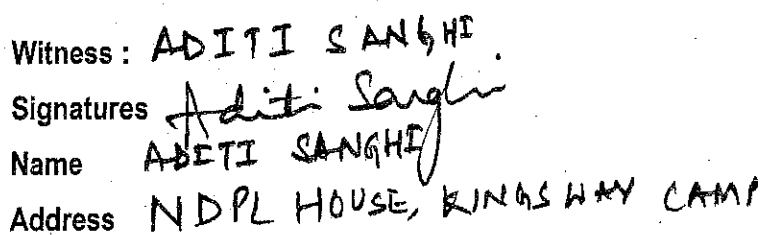 Witness : ADITI SANGHI
Signatures Aditi Sanghi
Name ADITI SANGHI
Address NDPL HOUSE, KINGSWAY CAMP